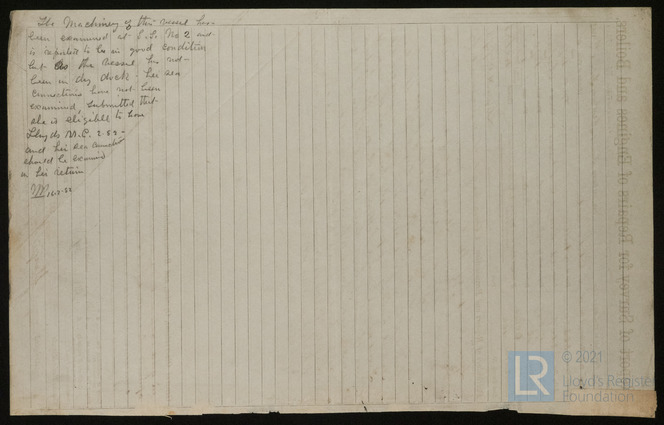 The Machinery of this vessel has
been examined at S.S. No 2 and
is reported to be in good condition
but as the vessel has not
been in dry dock her sea
connections have not been
examined, submitted that
she is eligible to have
Lloyds M.C. 2.82
and her sea connections
should be examined
on her return
16.3.82
of Survey for Repairs of Engines and Boilers.
LR
© 2021
Lloyd's Register
Foundation